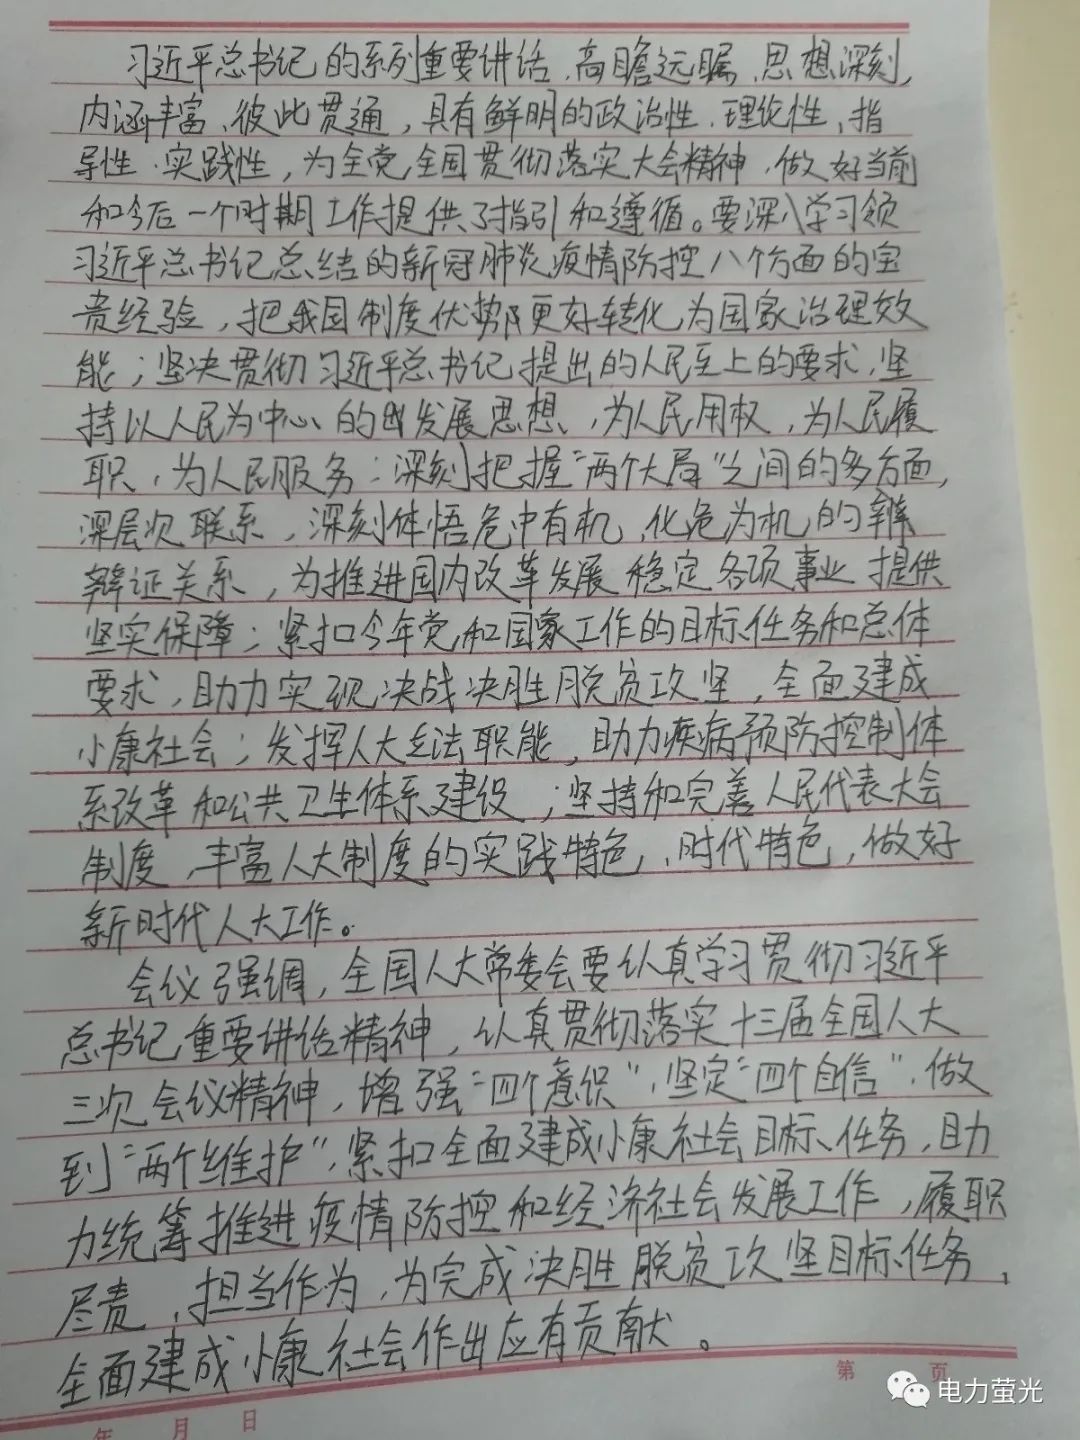 习近平总书记的系列重要讲话、高瞻远瞩、思想深刻，
内涵丰富、彼此贯通，具有鲜明的政治性、理论性、指
导性、实践性，为全党全国贯彻落实大会精神、做好当前
和今后一个时期工作提供了指引和遵循。要深入学习领
习近平总书记总结的新冠肺炎疫情防控八个方面的宝
贵经验，把我国制度优势更好转化为国家治理效
能；坚决贯彻习近平总书记提出的人民至上的要求，坚
持以人民为中心的发展思想，为人民用权，为人民履
职，为人民服务；深刻把握“两个大局”之间的多方面，
深层次联系，深刻体悟危中有机、化危为机的辩
辩证关系，为推进国内改革发展稳定各项事业提供
坚实保障；紧扣今年党和国家工作的目标任务和总体
要求，助力实现决战决胜脱贫攻坚，全面建成
小康社会；发挥人大立法职能，助力疾病预防控制体
系改革和公共卫生体系建设；坚持和完善人民代表大会
制度，丰富人大制度的实践特色，时代特色，做好
新时代人大工作。
会议强调，全国人大常委会要认真学习贯彻习近平
总书记重要讲话精神，认真贯彻落实十三届全国人大
三次会议精神，增强“四个意识”，坚定“四个自信”，做
到“两个维护”，紧扣全面建成小康社会目标任务，助
力统筹推进疫情防控和经济社会发展工作，履职
尽责，担当作为，为完成决胜脱贫攻坚目标任务，
全面建成小康社会作出应有贡献。
第 页
年 月 日
电力萤光